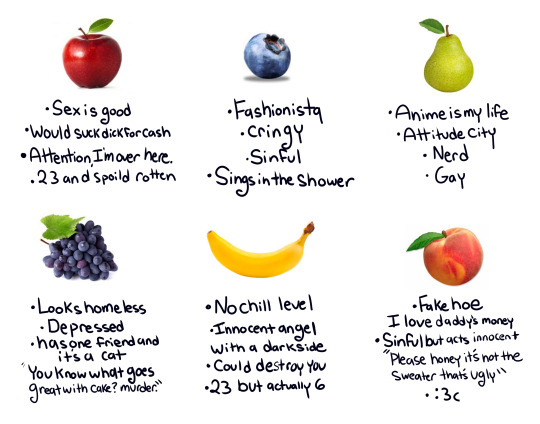 •Sex is good
•Would suck dick for cash
•Attention, I'm over here.
•23 and spoild rotten
•Fashionista
•Cringy
•Sinful
•Sings in the shower
•Anime is my life
•Attitude City
•Nerd
•Gay
•Looks homeless
•Depressed
•has one friend and
it's a cat
"You know what goes
great with cake? murder."
•No chill level
•Innocent angel
with a darkside
•Could destroy you
•23 but actually 6
•Fake hoe
I love daddy's money
•Sinful but acts innocent
"Please honey it's not the
sweater that's ugly"
•:3c